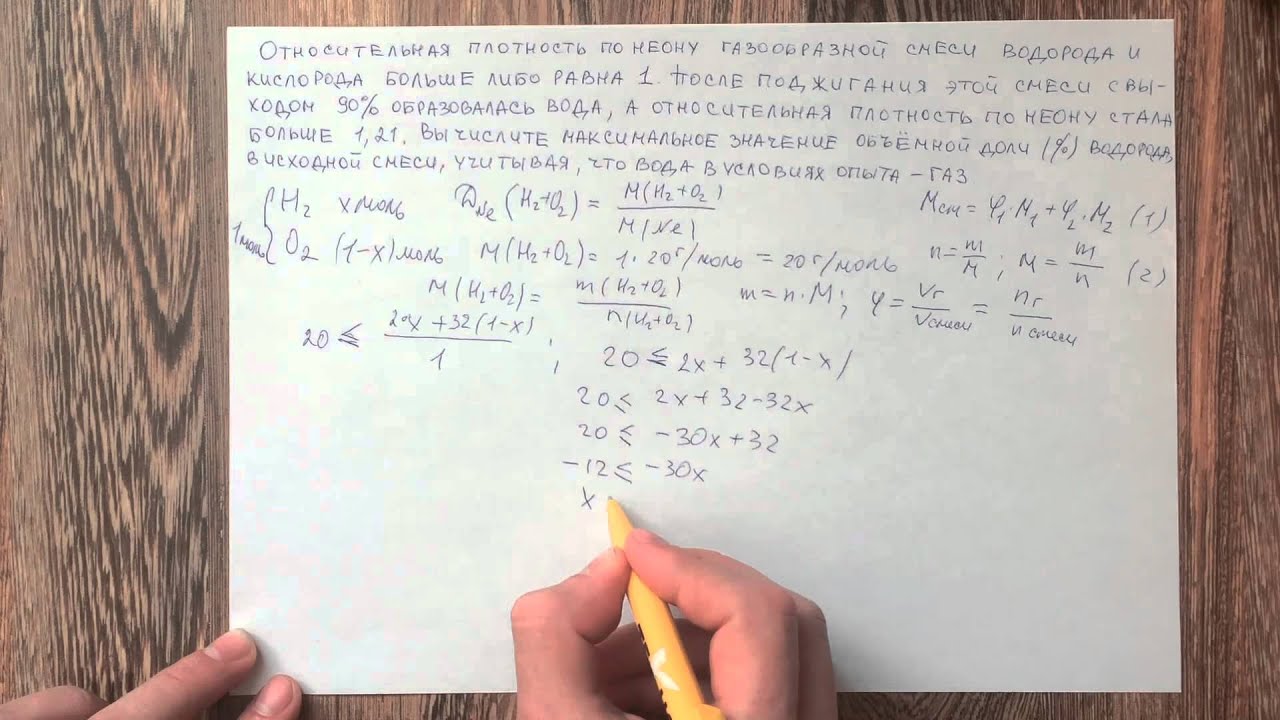 ОТНОСИТЕЛЬНАЯ ПЛОТНОСТЬ ПО НЕОНУ ГАЗООБРАЗНОЙ СМЕСИ ВОДОРОДА И
КИСЛОРОДА БОЛЬШЕ ЛИБО РАВНА 1. ПОСЛЕ ПОДЖИГАНИЯ ЭТОЙ СМЕСИ С ВЫ-
ХОДОМ 90% ОБРАЗОВАЛАСЬ ВОДА, А ОТНОСИТЕЛЬНАЯ ПЛОТНОСТЬ ПО НЕОНУ СТАЛА
БОЛЬШЕ 1,21. ВЫЧИСЛИТЕ МАКСИМАЛЬНОЕ ЗНАЧЕНИЕ ОБЪЁМНОЙ ДОЛИ (%) ВОДОРОДА,
В ИСХОДНОЙ СМЕСИ, УЧИТЫВАЯ, ЧТО ВОДА В УСЛОВИЯХ ОПЫТА – ГАЗ
1 моль { H₂ x моль D_Ne (H₂+O₂) = M(H₂+O₂) / M(Ne) Mсм = φ₁·M₁ + φ₂·M₂ (1)
O₂ (1-x) моль M(H₂+O₂) = 1·20 г/моль = 20 г/моль n = m/M ; M = m/n (2)
M(H₂+O₂) = m(H₂+O₂) / n(H₂+O₂) m = n·M ; φ = Vг / Vсмеси = nг / nсмеси
20 ≤ 2x + 32(1-x) / 1 ; 20 ≤ 2x + 32(1-x)
20 ≤ 2x + 32 - 32x
20 ≤ -30x + 32
-12 ≤ -30x
x